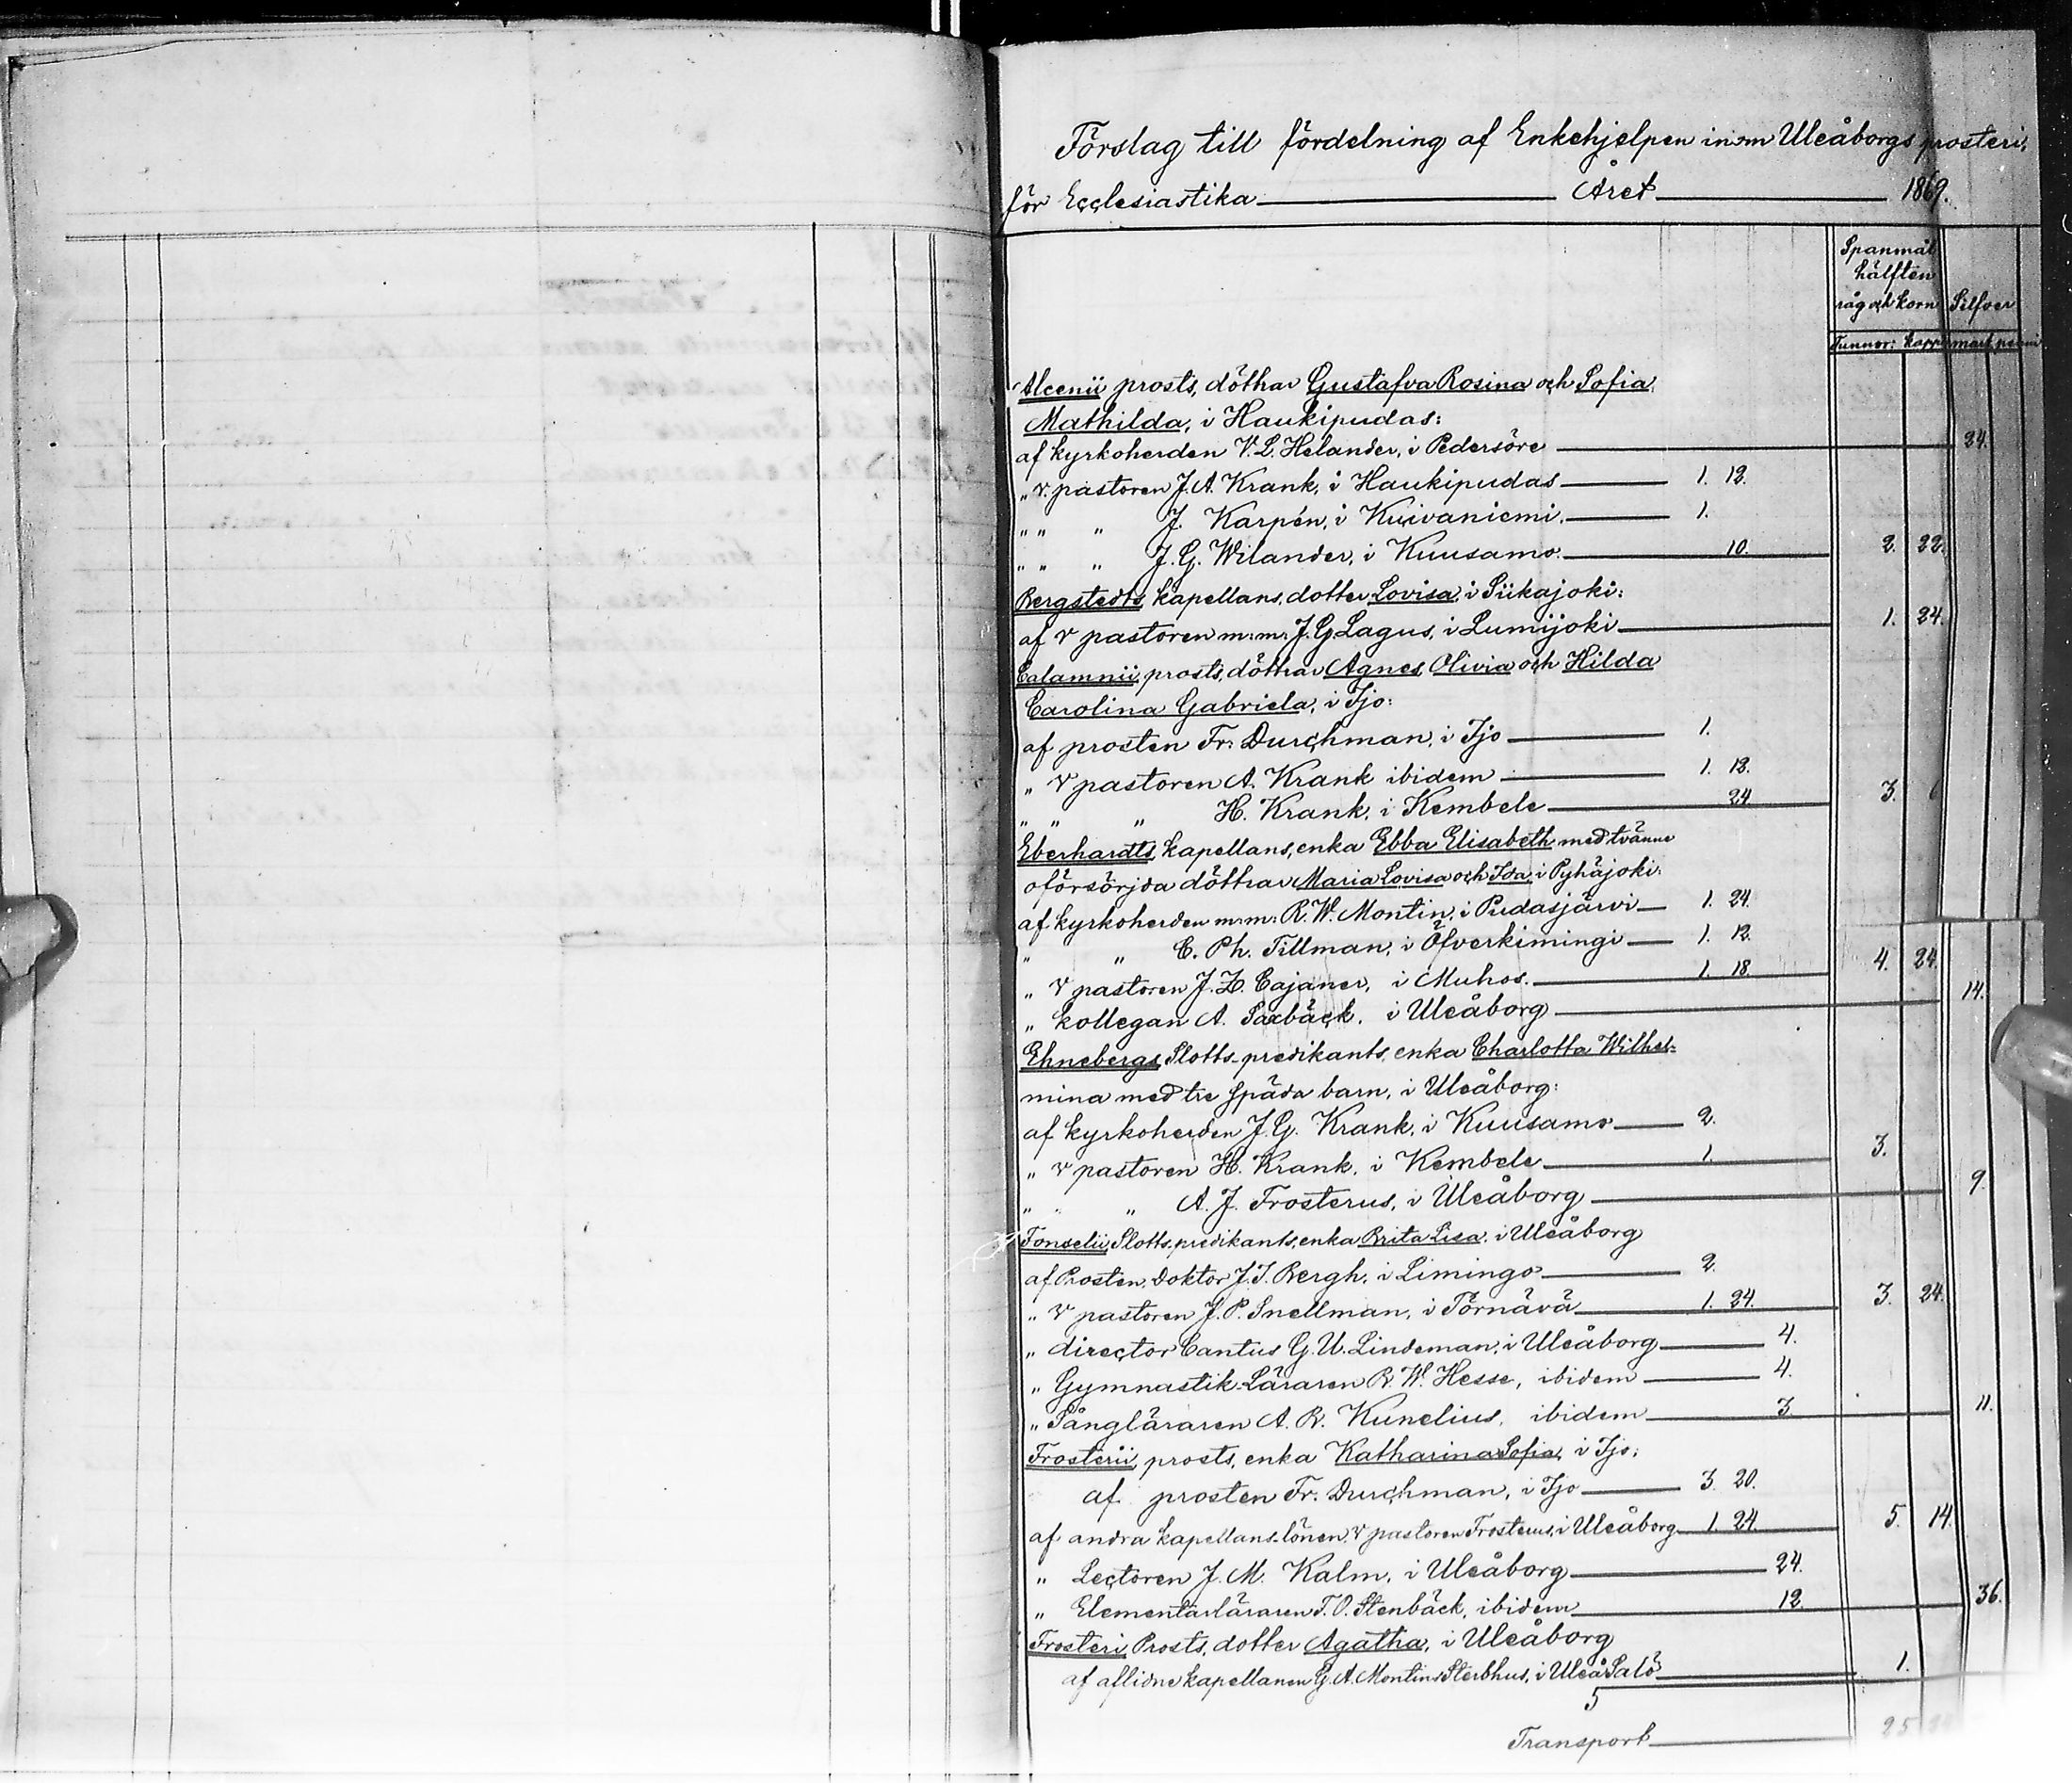 Förslag till fördelning af Enkehjelpen inom Uleåborgs prosteri,
för Ecclesiastika Året 1869.
Spanmål hälften råg och korn Silfver
Tunnor: kapp: mark penni
Alcenii prosts, döttrar Gustafva Rosina och Sofia
Mathilda, i Haukipudas:
af kyrkoherden V. L. Helander, i Pedersöre 24.
„ v. pastoren J. A. Krank, i Haukipudas 1. 12.
„ „ „ J. Karpén, i Kuivaniemi. 1.
„ „ „ J. G. Wilander, i Kuusamo. 10. 2. 22.
Bergstedts, kapellans, dotter Lovisa, i Siikajoki:
af v pastoren m:m: J. G. Lagus, i Lumijoki 1. 24.
Calamnii, prosts, döttrar Agnes, Olivia och Hilda
Carolina Gabriela, i Ijo:
af prosten Fr: Durchman, i Ijo 1.
„ v pastoren A. Krank ibidem 1. 18.
„ „ „ H. Krank, i Kembele 24 3.
Eberhardts, kapellans, enka Ebba Elisabeth med tvänne
oförsörjda döttrar Maria Lovisa och Ida, i Pyhäjoki:
af kyrkoherden m:m: R. W. Montin, i Pudasjärvi 1. 24.
„ „ C. Ph. Tillman, i Öfverkimingi 1. 12.
„ v pastoren J. Z. Cajaner, i Muhos. 1. 18. 4. 24.
„ kollegan A. Saxbäck. i Uleåborg 14.
Ehnebergs, Slotts-predikants, enka Charlotta Wilhel-
mina med tre späda barn, i Uleåborg:
af kyrkoherden J. G. Krank, i Kuusamo 2.
„ v pastoren H. Krank. i Kembele 1. 3.
„ „ „ A. J. Frosterus, i Uleåborg 9.
Fonselii, Slotts-predikants, enka Brita Lisa, i Uleåborg
af Prosten, Doktor J. I. Bergh, i Limingo 2.
„ v pastoren J. P. Snellman, i Törnävä 1. 24. 3. 24.
„ director Cantus G. U. Lindeman, i Uleåborg 4.
„ Gymnastik-Läraren R. W. Hesse, ibidem 4.
„ Sångläraren A. R. Kunelius, ibidem 3. 11.
Frosterii, prosts, enka Katharina Sofia, i Ijo:
af prosten Fr: Durchman, i Ijo 3. 20.
af andra kapellans-lönen, v pastoren Frosterus, i Uleåborg 1. 24. 5. 14.
„ Lectoren J. M. Kalm, i Uleåborg 24.
„ Elementarläraren T. O. Stenbäck, ibidem 12. 36.
Frosteri, Prosts, dotter Agatha, i Uleåborg
af aflidne kapellanen G. A. Montins Sterbhus, i Uleå Salo 1.
5
Transport 25